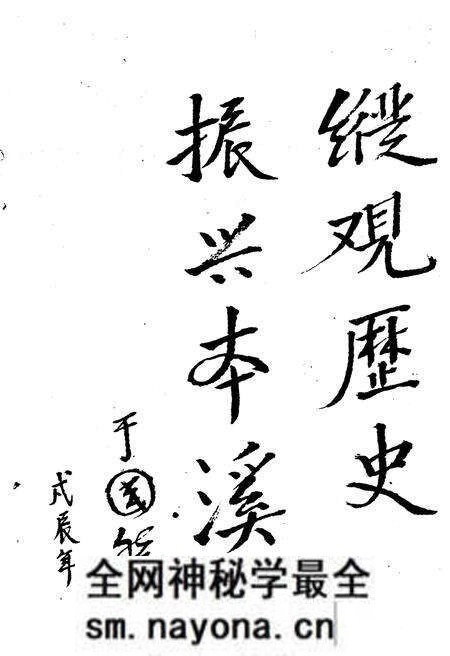 縱观歷史
振兴本溪
于国
戊辰年
全网神秘学最全
sm.nayona.cn